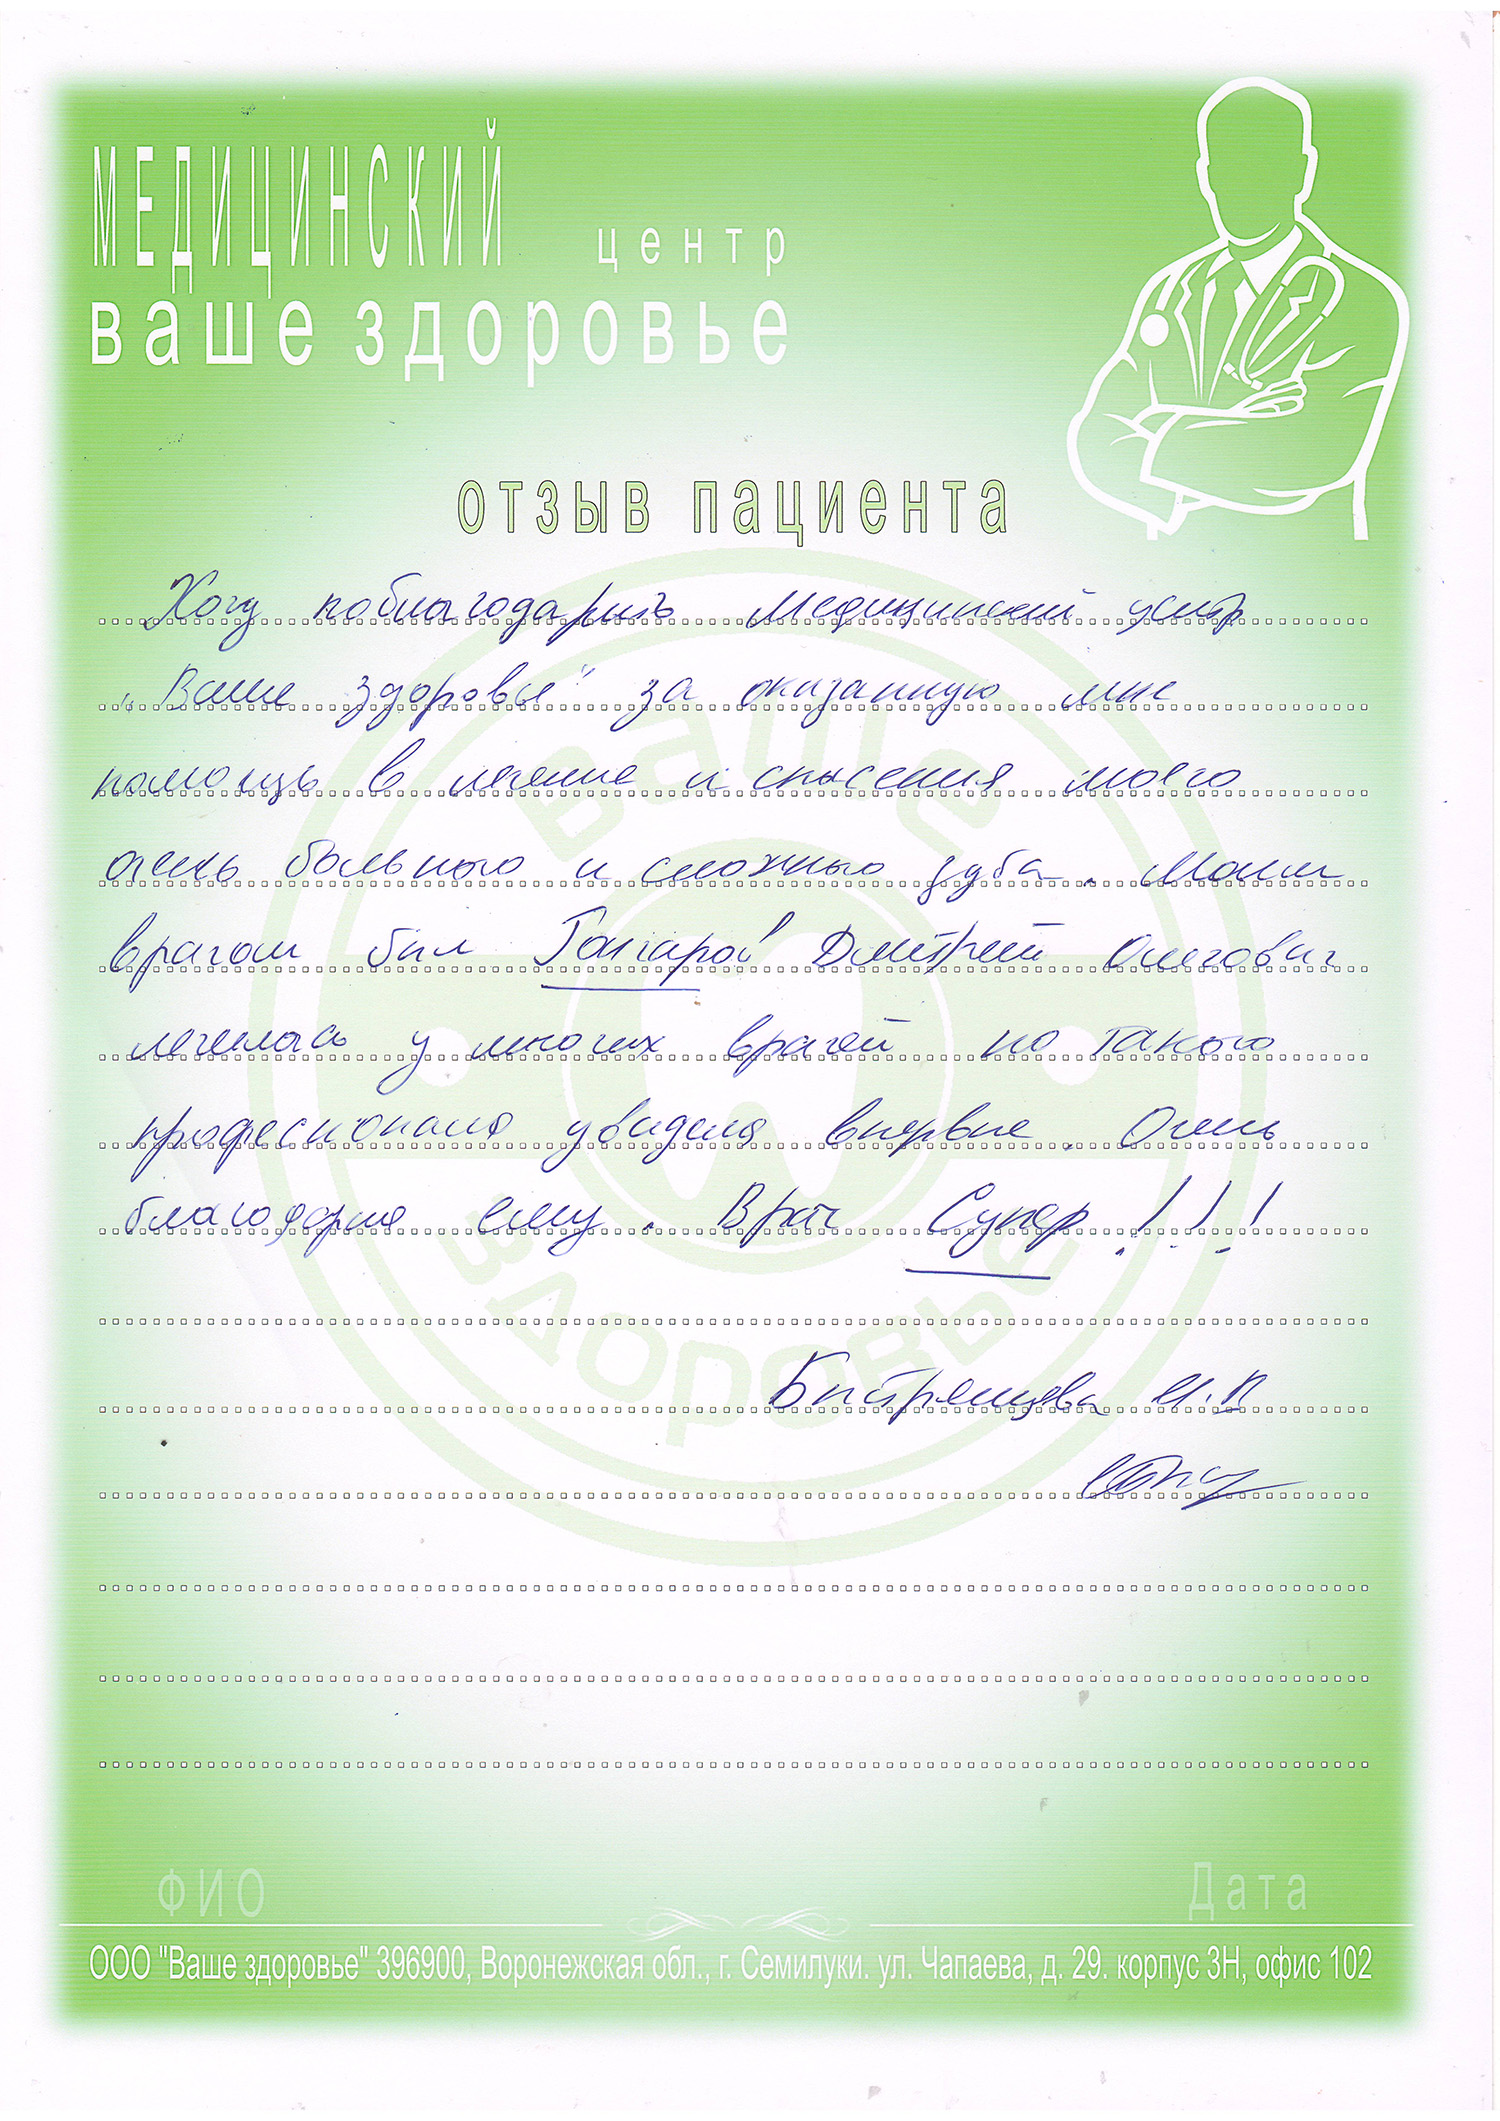 МЕДИЦИНСКИЙ центр
ваше здоровье
отзыв пациента
Хочу поблагодарить Медицинский центр
„Ваше здоровье" за оказанную мне
помощь в лечение и спасения моего
очень больного и сложного зуба. Моим
врачом был Гончаров Дмитрий Олегович
лечилась у многих врачей но такого
професионала увидела впервые. Очень
благодарна ему. Врач Супер!!!
И.В
ваше
здоровье
ФИО Дата
ООО "Ваше здоровье" 396900, Воронежская обл., г. Семилуки. ул. Чапаева, д. 29. корпус 3Н, офис 102